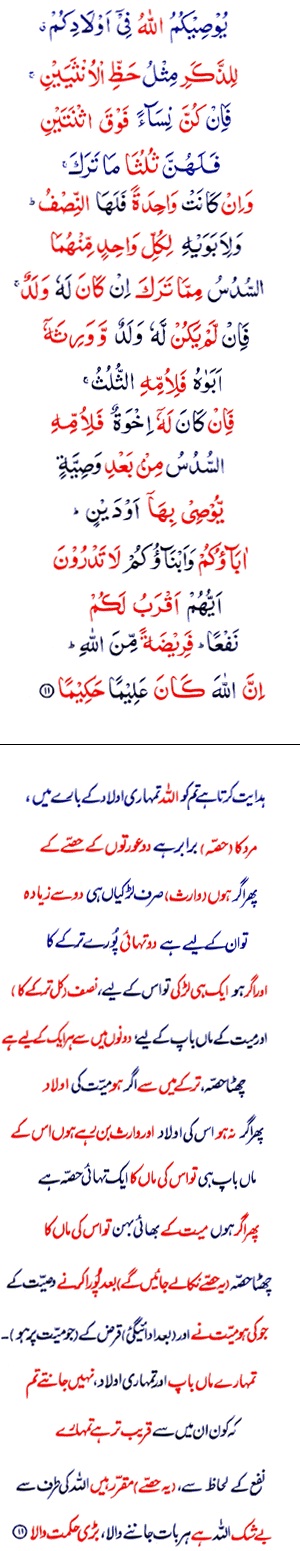 يُوْصِيْكُمُ اللّٰهُ فِيْٓ اَوْلَادِكُمْ ۤ
لِلذَّكَرِ مِثْلُ حَظِّ الْاُنْثَيَيْنِ ۚ
فَاِنْ كُنَّ نِسَآءً فَوْقَ اثْنَتَيْنِ
فَلَهُنَّ ثُلُثَا مَا تَرَكَ ۚ
وَاِنْ كَانَتْ وَاحِدَةً فَلَهَا النِّصْفُ ؕ
وَلِاَبَوَيْهِ لِكُلِّ وَاحِدٍ مِّنْهُمَا
السُّدُسُ مِمَّا تَرَكَ اِنْ كَانَ لَهٗ وَلَدٌ ۚ
فَاِنْ لَّمْ يَكُنْ لَّهٗ وَلَدٌ وَّوَرِثَهٗٓ
اَبَوٰهُ فَلِاُمِّهِ الثُّلُثُ ۚ
فَاِنْ كَانَ لَهٗٓ اِخْوَةٌ فَلِاُمِّهِ
السُّدُسُ مِنْۢ بَعْدِ وَصِيَّةٍ
يُّوْصِيْ بِهَآ اَوْ دَيْنٍ ؕ
اٰبَآؤُكُمْ وَاَبْنَآؤُكُمْ لَا تَدْرُوْنَ
اَيُّهُمْ اَقْرَبُ لَكُمْ
نَفْعًا ؕ فَرِيْضَةً مِّنَ اللّٰهِ ؕ
اِنَّ اللّٰهَ كَانَ عَلِيْمًا حَكِيْمًا ⑪
ہدایت کرتا ہے تم کو اللہ تمہاری اولاد کے بارے میں،
مرد کا (حصّہ) برابر ہے دو عورتوں کے حصّے کے
پھر اگر ہوں (وارث) صرف لڑکیاں ہی دو سے زیادہ
تو ان کے لیے ہے دو تہائی پُورے ترکے کا
اور اگر ہو ایک ہی لڑکی تو اس کے لیے، نصف (کل ترکے کا)
اور میت کے ماں باپ کے لیے، دونوں میں سے ہر ایک کے لیے ہے
چھٹا حصّہ، ترکے میں سے اگر ہو میّت کی اولاد
پھر اگر نہ ہو اس کی اولاد اور وارث بن رہے ہوں اس کے
ماں باپ ہی تو اس کی ماں کا ایک تہائی حصّہ ہے
پھر اگر ہوں میت کے بھائی بہن تو اس کی ماں کا
چھٹا حصّہ (یہ حصّے نکالے جائیں گے) بعد پُورا کرنے وصیّت کے
جو کی ہو میّت نے اور (بعد ادائیگئ) قرض کے (جو میّت پر ہو)۔
تمہارے ماں باپ اور تمہاری اولاد، نہیں جانتے تم
کہ کون ان میں سے قریب تر ہے تمہارے
نفع کے لحاظ سے، (یہ حصّے) مقرر ہیں اللہ کی طرف سے
بے شک اللہ ہے ہر بات جاننے والا، بڑی حکمت والا ⑪